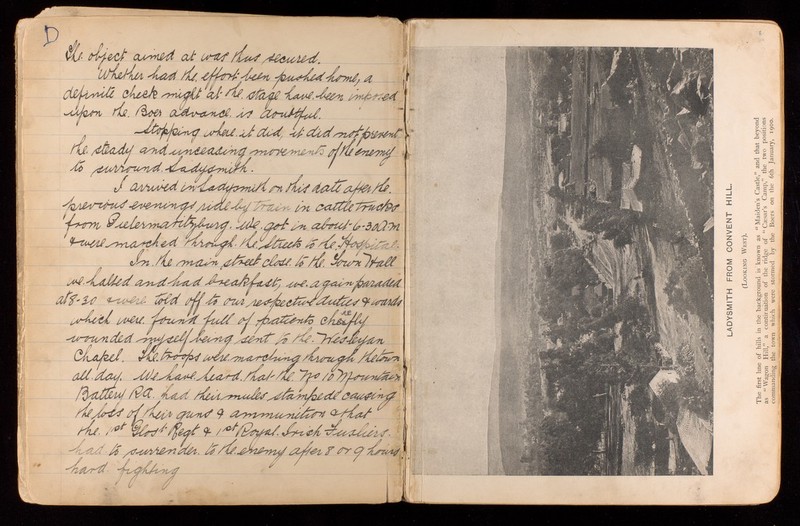 D
The object aimed at was thus secured.
Whether had the effort been pushed home, a
definite check might at the stage have been imposed
upon the Boer advance is doubtful.
Stopping where it did, it did not prevent
the steady and unceasing movements of the enemy
to surround Ladysmith.
I arrived in Ladysmith on this date after the
previous evenings ride by train in cattle trucks
from Pietermaritzburg. We got in about 6-30am
& were marched through the streets to the Hospital.
In the main street close to the Town Hall
we halted and had breakfast, we again paraded
at 8-30 & were told off to our respective duties & wards
which were found full of patients chiefly
wounded myself being sent to the Wesleyan
Chapel. The troops were marching through the town
all day. We have heard that the No 10 Mountain
Battery RA. had their mules stampede causing
the loss of their guns & ammunition & that
the 1st Glost Regt & 1st Royal Irish Fusiliers
had to surrender to the enemy after 8 or 9 hours
hard fighting
LADYSMITH FROM CONVENT HILL.
(LOOKING WEST).
The first line of hills in the background is known as "Maiden's Castle," and that beyond
as "Wagon Hill," a continuation of the ridge of "Cæsar's Camp," the two positions
commanding the town which were stormed by the Boers on the 6th January, 1900.